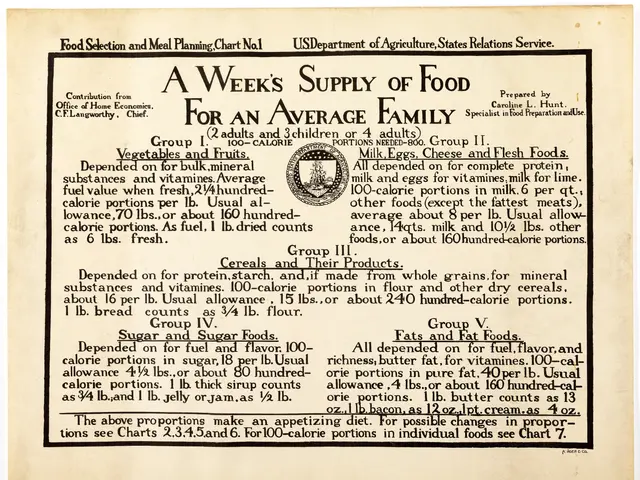 Food Selection and Meal Planning, Chart No.1 US Department of Agriculture, States Relations Service.
A WEEK'S SUPPLY OF FOOD
FOR AN AVERAGE FAMILY
Contribution from
Office of Home Economics,
C.F. Langworthy, Chief.
Prepared by
Caroline L. Hunt,
Specialist in Food Preparation and Use.
(2 adults and 3 children or 4 adults)
100-CALORIE PORTIONS NEEDED-800.
Group I.
Vegetables and Fruits.
Depended on for bulk, mineral
substances and vitamines. Average
fuel value when fresh, 2¼ hundred-
calorie portions per lb. Usual al-
lowance, 70 lbs., or about 160 hundred-
calorie portions. As fuel, 1 lb. dried counts
as 6 lbs. fresh.
Group II.
Milk, Eggs, Cheese and Flesh Foods.
All depended on for complete protein;
milk and eggs for vitamines, milk for lime.
100-calorie portions in milk, 6 per qt.,
other foods (except the fattest meats),
average about 8 per lb. Usual allow-
ance, 14 qts. milk and 10½ lbs. other
foods, or about 160 hundred-calorie portions.
Group III.
Cereals and Their Products.
Depended on for protein, starch, and, if made from whole grains, for mineral
substances and vitamines. 100-calorie portions in flour and other dry cereals,
about 16 per lb. Usual allowance, 15 lbs., or about 240 hundred-calorie portions.
1 lb. bread counts as ¾ lb. flour.
Group IV.
Sugar and Sugar Foods.
Depended on for fuel and flavor. 100-
calorie portions in sugar, 18 per lb. Usual
allowance 4½ lbs., or about 80 hundred-
calorie portions. 1 lb. thick sirup counts
as ¾ lb., and 1 lb. jelly or jam, as ½ lb.
Group V.
Fats and Fat Foods.
All depended on for fuel, flavor, and
richness; butter fat, for vitamines. 100-cal-
orie portions in pure fat, 40 per lb. Usual
allowance, 4 lbs., or about 160 hundred-cal-
orie portions. 1 lb. butter counts as 13
oz., 1 lb. bacon, as 12 oz., 1 pt. cream, as 4 oz.
The above proportions make an appetizing diet. For possible changes in propor-
tions see Charts 2,3,4,5, and 6. For 100-calorie portions in individual foods see Chart 7.